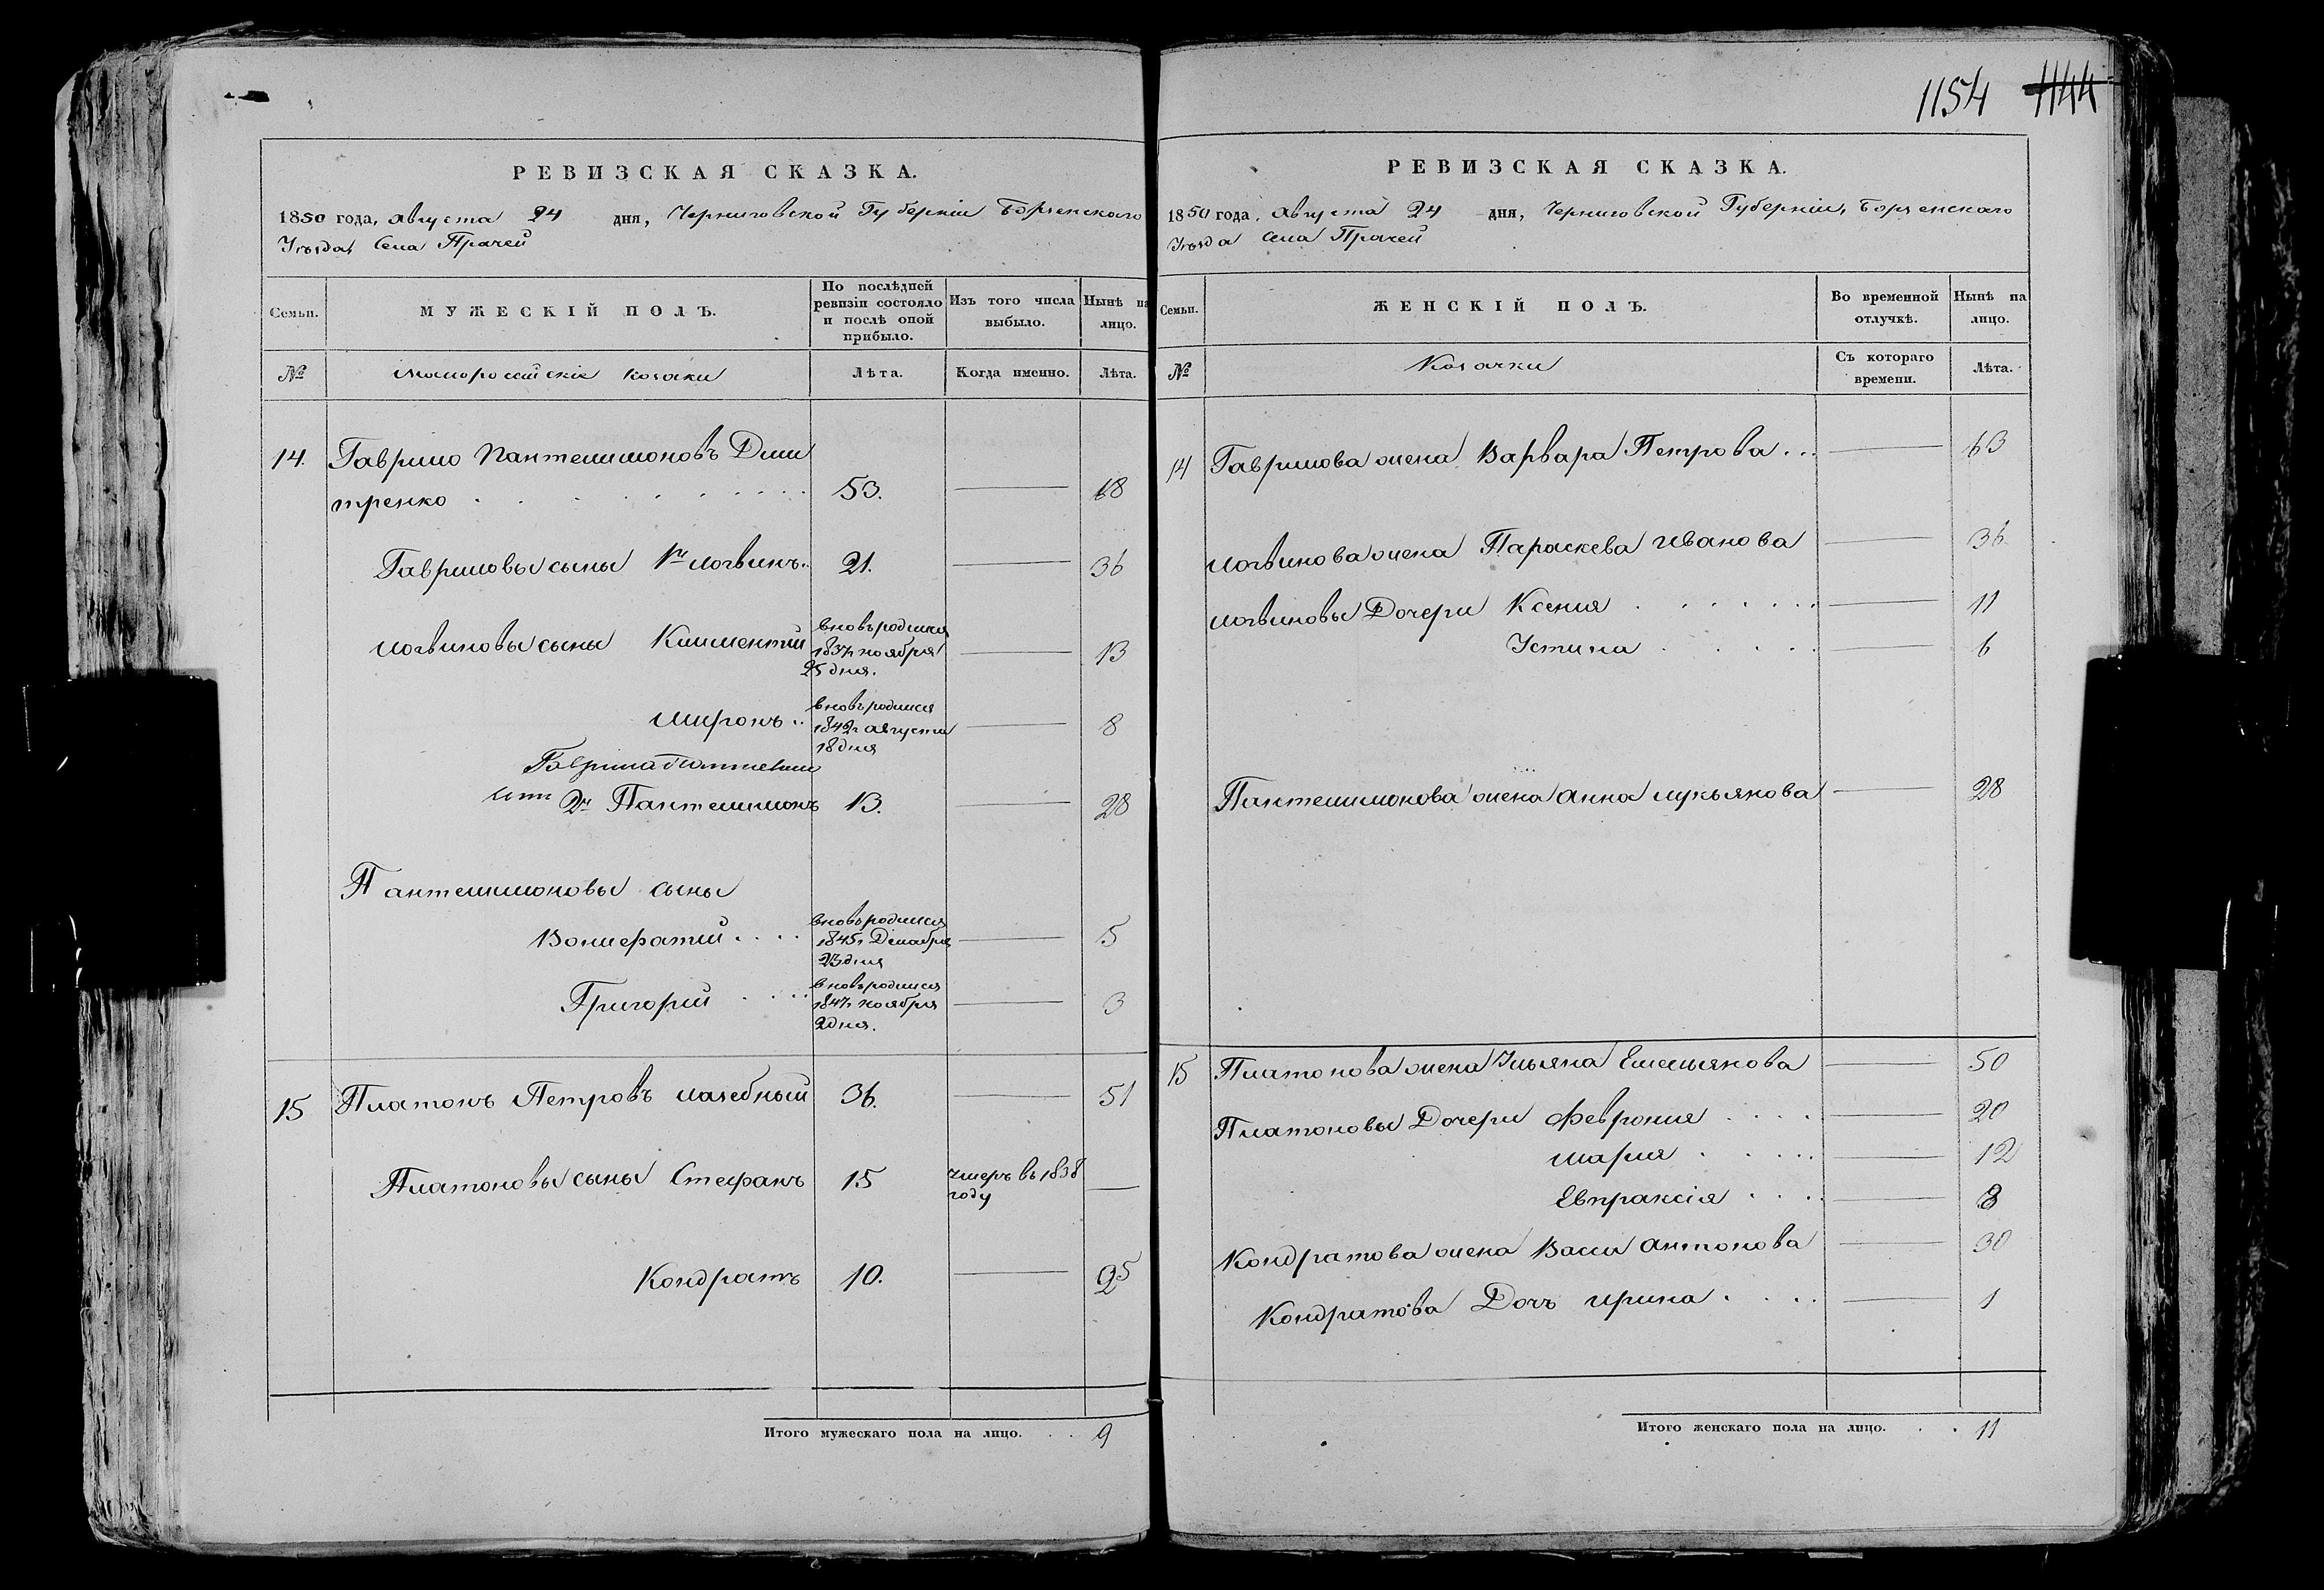 1154 1144
РЕВИЗСКАЯ СКАЗКА.
1850 года, августа 24 дня, Черниговской Губерніи Борзенскаго
Уѣзда, Села Прачей
Семьи.
МУЖЕСКІЙ ПОЛЪ.
По послѣдней
ревизіи состояло
и послѣ оной
прибыло.
Изъ того числа
выбыло.
Нынѣ на
лицо.
№
Малороссійскіе козаки
Лѣта.
Когда именно.
Лѣта.
14. Гаврило Пантелимоновъ Дми
тренко 53. 68
Гавриловы сыны 1й Логвинъ 21. 36
Логвиновы сыны Климентій вновьродился 13
1837г ноября
25 дня.
Миронъ вновьродился 8
1842г августа
18 дня
Гаврила Пантелимо
2й Пантелимонъ 13. 28
Пантелимоновы сыны
Вонифатий вновьродился 5
1845г Декабря
23 дня
Григорий вновьродился 3
1847г ноября
2 дня.
15 Платонъ Петровъ Лазебный 36. 51
Платоновы сыны Стефанъ 15 умеръ въ 1838
году
Кондратъ 10. 25
Итого мужескаго пола на лицо. 9
РЕВИЗСКАЯ СКАЗКА.
1850 года, августа 24 дня, Черниговской Губерніи, Борзенскаго
Уѣзда Села Прачей
Семьи.
ЖЕНСКІЙ ПОЛЪ.
Во временной
отлучкѣ.
Нынѣ на
лицо.
№
Козачки
Съ котораго
времени.
Лѣта.
14 Гаврилова жена Варвара Петрова 63
Логвинова жена Параскева Иванова 36
Логвиновы Дочери Ксения 11
Устина 6
Пантелимонова жена Анна Лукьянова 28
15 Платонова жена Ульяна Емельянова 50
Платоновы Дочери Феврония 20
Мария 12
Евпраксія 8
Кондратова жена Васса Антонова 30
Кондратова Дочь Ирина 1
Итого женскаго пола на лицо. 11